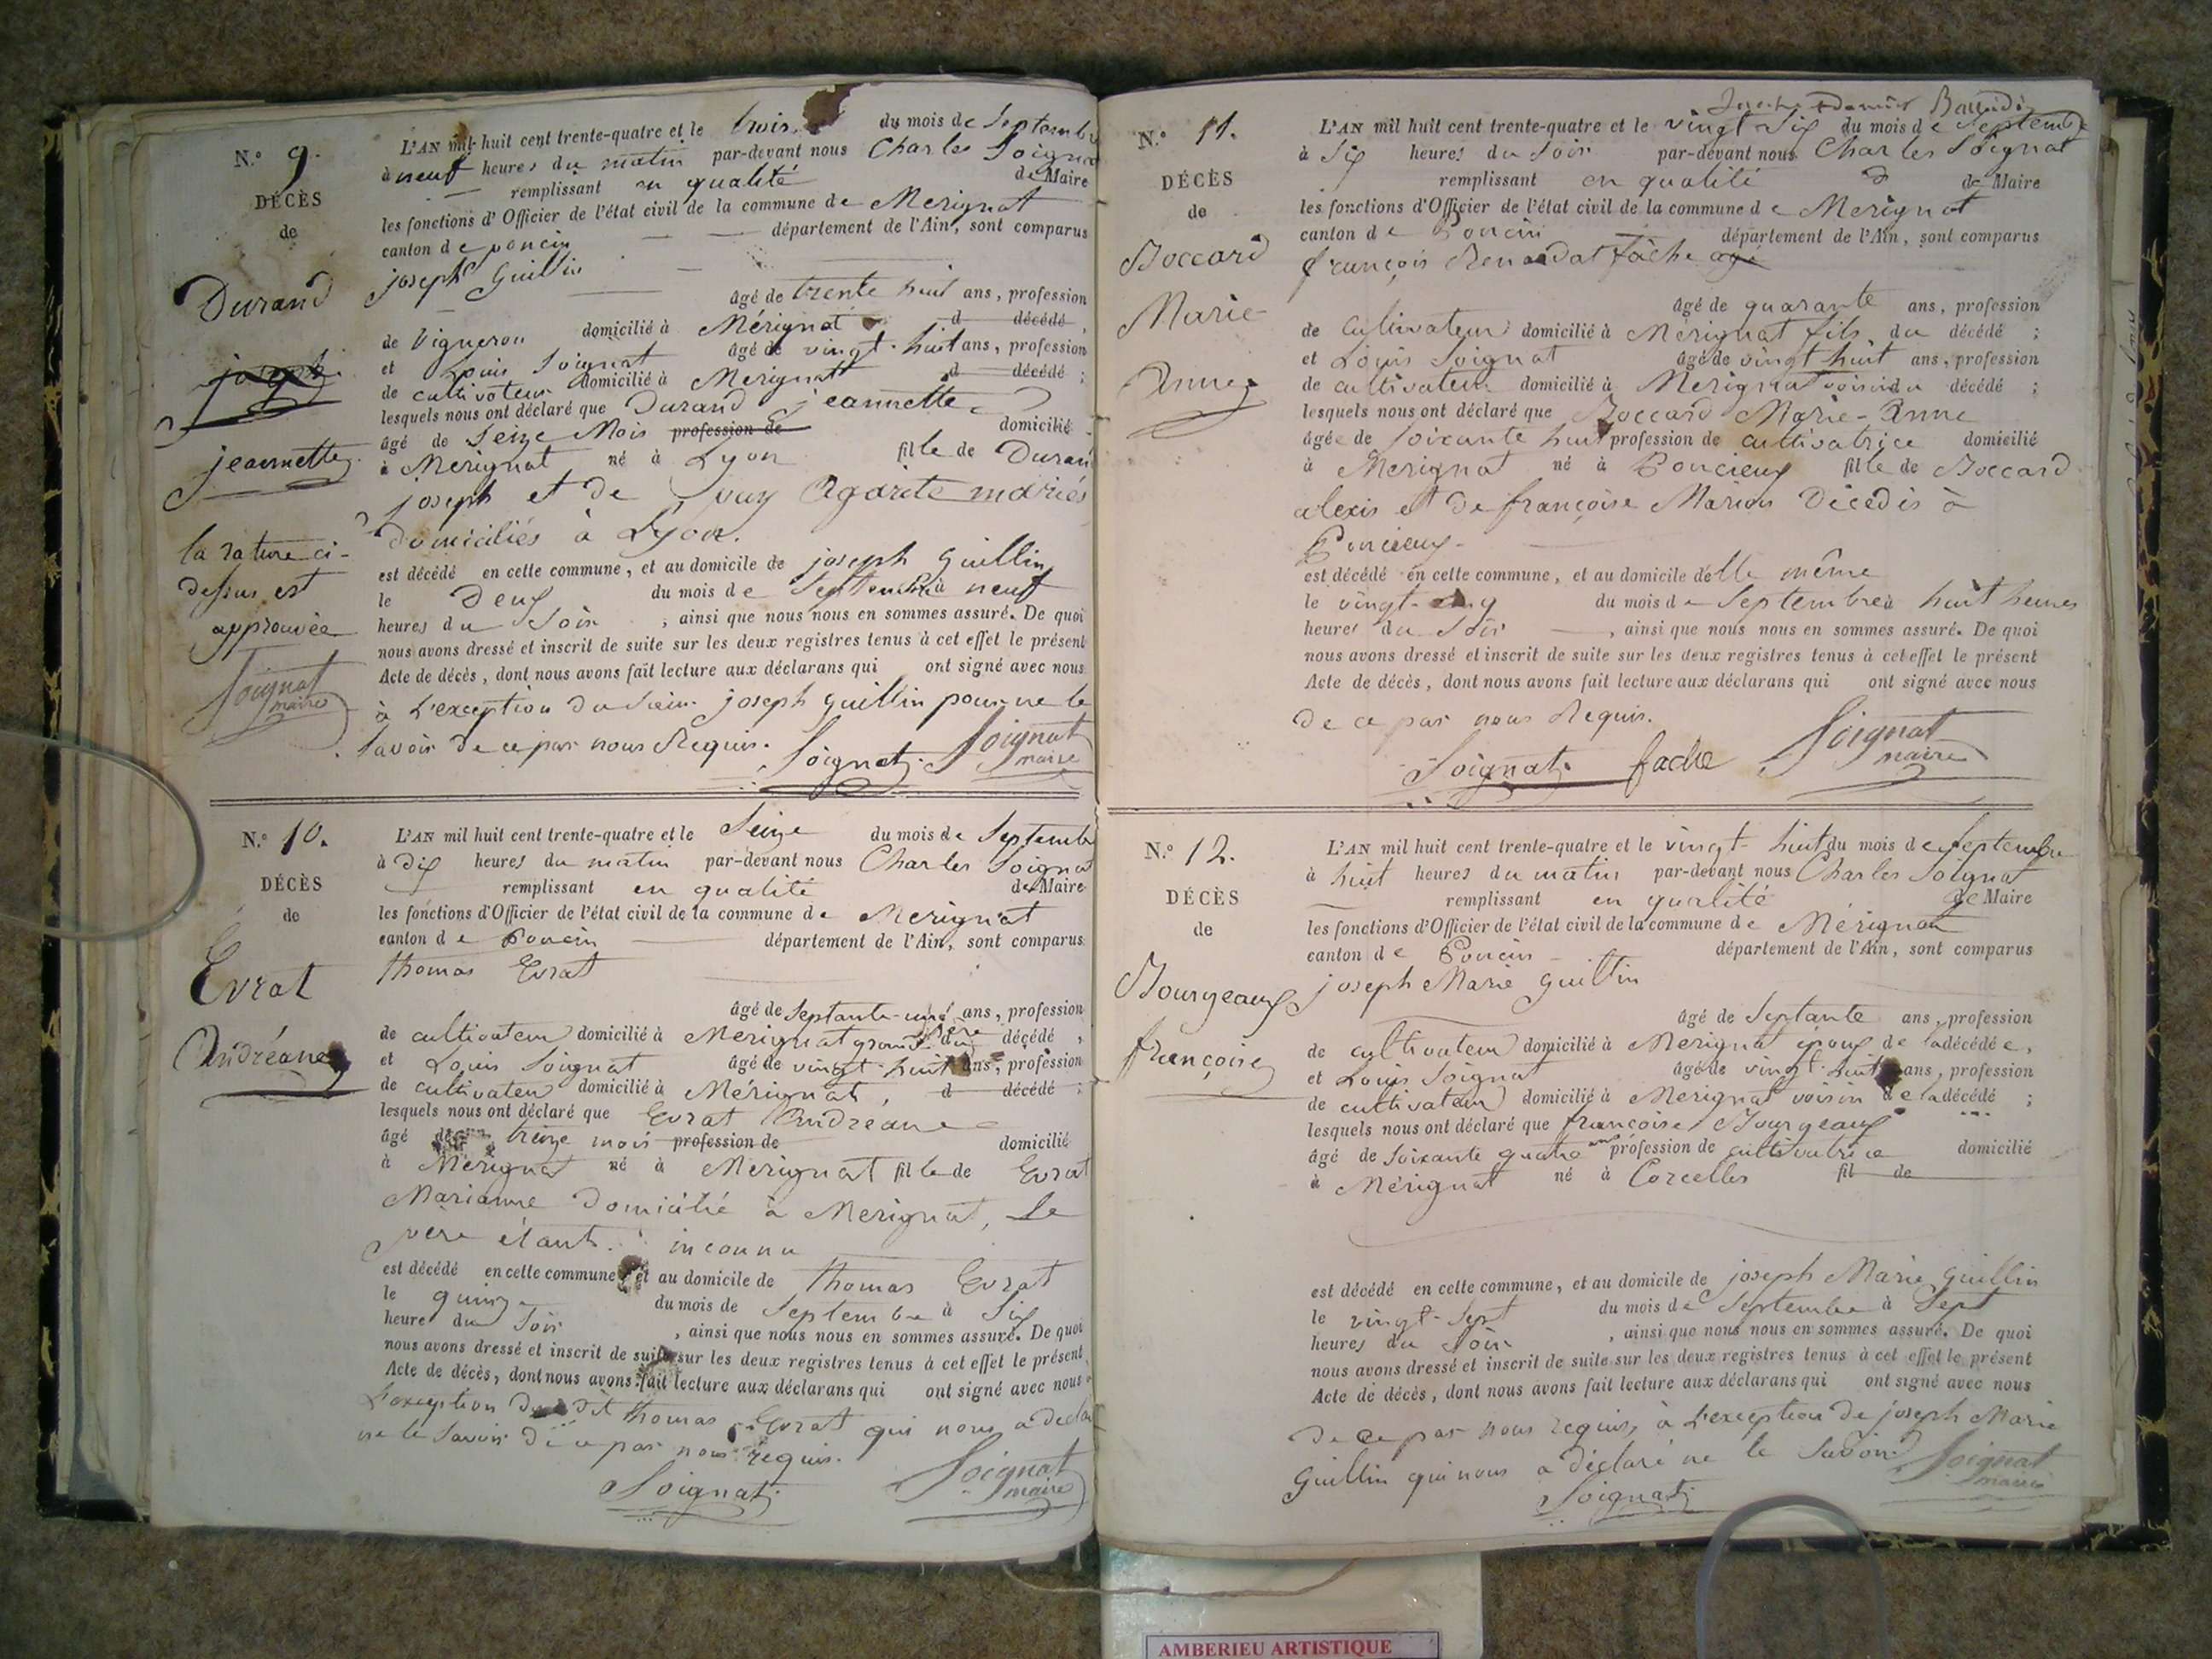 N.° 9.
DÉCÈS
de
Durand
joseph
jeannette
la rature ci-
dessus est
approuvée
Soignat
maire
L'AN mil huit cent trente-quatre et le trois du mois de Septembre
à neuf heures du matin par-devant nous Charles Soignat
remplissant en qualité de Maire
les fonctions d'Officier de l'état civil de la commune de Merignat
canton de poncin département de l'Ain, sont comparus
joseph Guillin
âgé de trente huit ans, profession
de Vigneron domicilié à Mérignat d décédé,
et Louis Soignat âgé de vingt-huit ans, profession
de cultivateur domicilié à Merignat d décédé ;
lesquels nous ont déclaré que Durand jeannette
âgé de Seize Mois profession de domicilié
à Merignat né à Lyon fille de Durand
joseph et de Agarite mariés
domiciliés à Lyon.
est décédé en cette commune, et au domicile de joseph Guillin
le Deux du mois de Septembre à neuf
heures du Soir, ainsi que nous nous en sommes assuré. De quoi
nous avons dressé et inscrit de suite sur les deux registres tenus à cet effet le présent
Acte de décès, dont nous avons fait lecture aux déclarans qui ont signé avec nous
à L'exception du Sieur joseph guillin pour ne le
Savoir de ce par nous Requis.
Soignat Soignat
maire
N.° 10.
DÉCÈS
de
Evrat
Andréane
L'AN mil huit cent trente-quatre et le Seize du mois de Septembre
à dix heures du matin par-devant nous Charles Soignat
remplissant en qualité de Maire
les fonctions d'Officier de l'état civil de la commune de Merignat
canton de Poncin département de l'Ain, sont comparus
thomas Evrat
âgé de Septante-une ans, profession
de cultivateur domicilié à Merignat grand père du décédé,
et Louis Soignat âgé de vingt-huit ans, profession
de cultivateur domicilié à Mérignat, d décédé ;
lesquels nous ont déclaré que Evrat Andréane
âgé de treize mois profession de domicilié
à Merignat né à Merignat fille de Evrat
Marianne domicilié à Merignat, Le
père étant inconnu
est décédé en cette commune, et au domicile de thomas Evrat
le quinze du mois de Septembre à Six
heure du Soir, ainsi que nous nous en sommes assuré. De quoi
nous avons dressé et inscrit de suite sur les deux registres tenus à cet effet le présent
Acte de décès, dont nous avons fait lecture aux déclarans qui ont signé avec nous
L'exception du dit thomas Evrat qui nous a déclaré
ne le Savoir de ce par nous requis.
Soignat Soignat
maire
N.° 11.
DÉCÈS
de
Boccard
Marie
Anne
L'AN mil huit cent trente-quatre et le vingt-Six du mois de Septembre
à Six heures du Soir par-devant nous Charles Soignat
remplissant en qualité de Maire
les fonctions d'Officier de l'état civil de la commune de Merignat
canton de Poncin département de l'Ain, sont comparus
françois Renaudat fâche agé
âgé de quarante ans, profession
de Cultivateur domicilié à Mérignat fils du décédé ;
et Louis Soignat âgé de vingt huit ans, profession
de cultivateur domicilié à Merignat voisin du décédé ;
lesquels nous ont déclaré que Boccard Marie-Anne
âgée de Soixante huit profession de cultivatrice domicilié
à Merignat né à Poncieux fille de Boccard
alexis et de françoise Marion Décédés à
Poncieux
est décédé en cette commune, et au domicile d'elle même
le vingt-cinq du mois de Septembre à huit heures
heures du Soir, ainsi que nous nous en sommes assuré. De quoi
nous avons dressé et inscrit de suite sur les deux registres tenus à cet effet le présent
Acte de décès, dont nous avons fait lecture aux déclarans qui ont signé avec nous
de ce par nous Requis.
Soignat fache Soignat
maire
N.° 12.
DÉCÈS
de
Bourgeaux
françoise
L'AN mil huit cent trente-quatre et le vingt-huit du mois de Septembre
à huit heures du matin par-devant nous Charles Soignat
remplissant en qualité de Maire
les fonctions d'Officier de l'état civil de la commune de Mérignat
canton de Poncin département de l'Ain, sont comparus
joseph Marie guillin
âgé de Septante ans, profession
de cultivateur domicilié à Merignat époux de la décédée,
et Louis Soignat âgé de vingt-huit ans, profession
de cultivateur domicilié à Merignat voisin de la décédé ;
lesquels nous ont déclaré que françoise Bourgeaux
âgé de Soixante quatre ans profession de cultivatrice domicilié
à Mérignat né à Corcelles fil de
est décédé en cette commune, et au domicile de joseph Marie guillin
le vingt-Sept du mois de Septembre à Sept
heures du Soir, ainsi que nous nous en sommes assuré. De quoi
nous avons dressé et inscrit de suite sur les deux registres tenus à cet effet le présent
Acte de décès, dont nous avons fait lecture aux déclarans qui ont signé avec nous
de ce par nous requis, à L'exception de joseph Marie
Guillin qui nous a déclaré ne le Savoir
Soignat Soignat
maire
AMBERIEU ARTISTIQUE